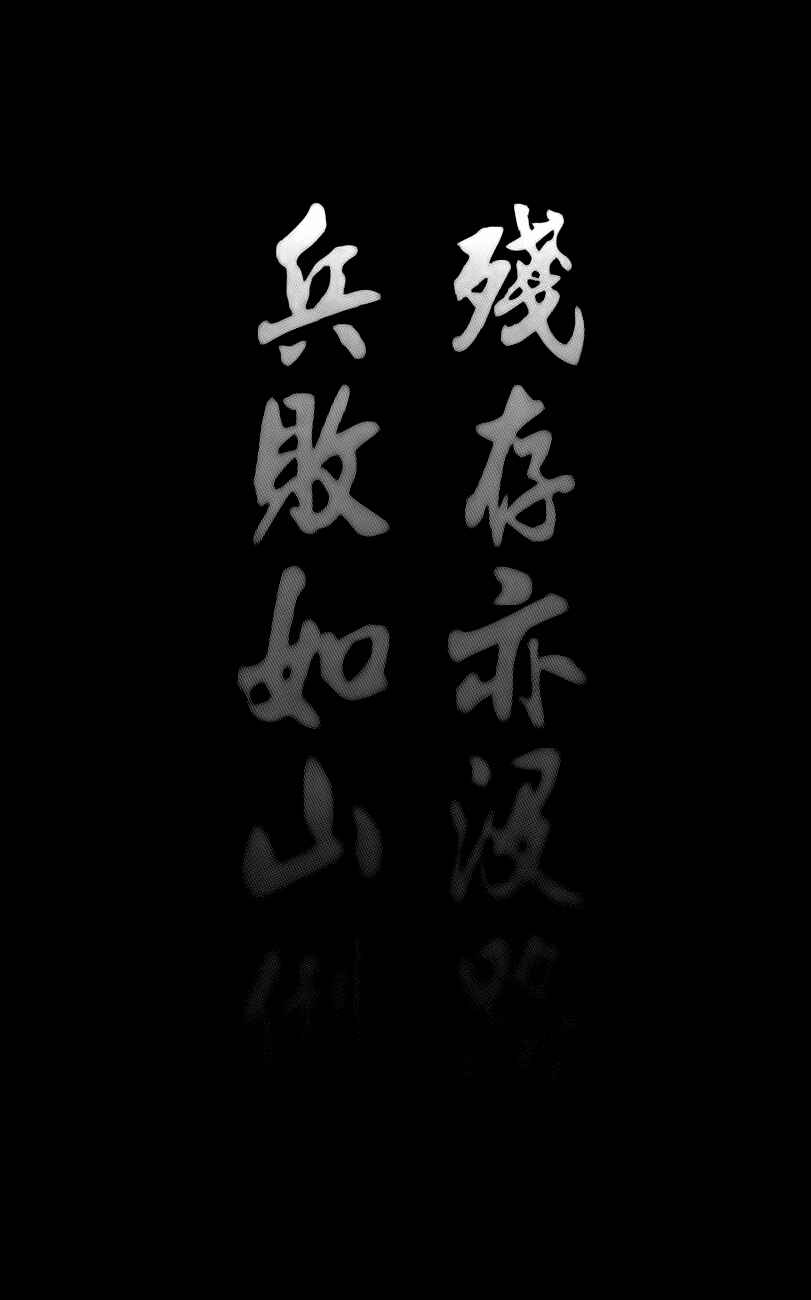 殘存亦沒
兵敗如山倒